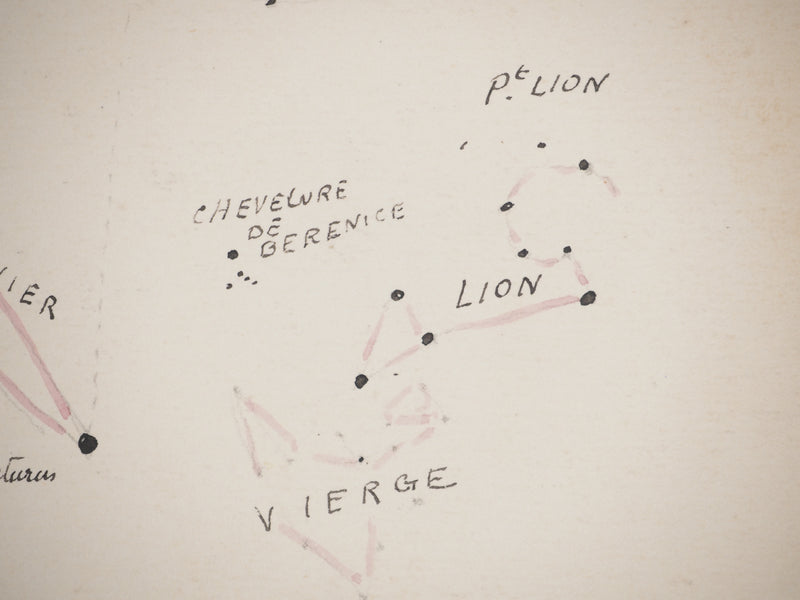 Pt. LION
CHEVELURE
DE
BERENICE
IER
LION
turus
VIERGE